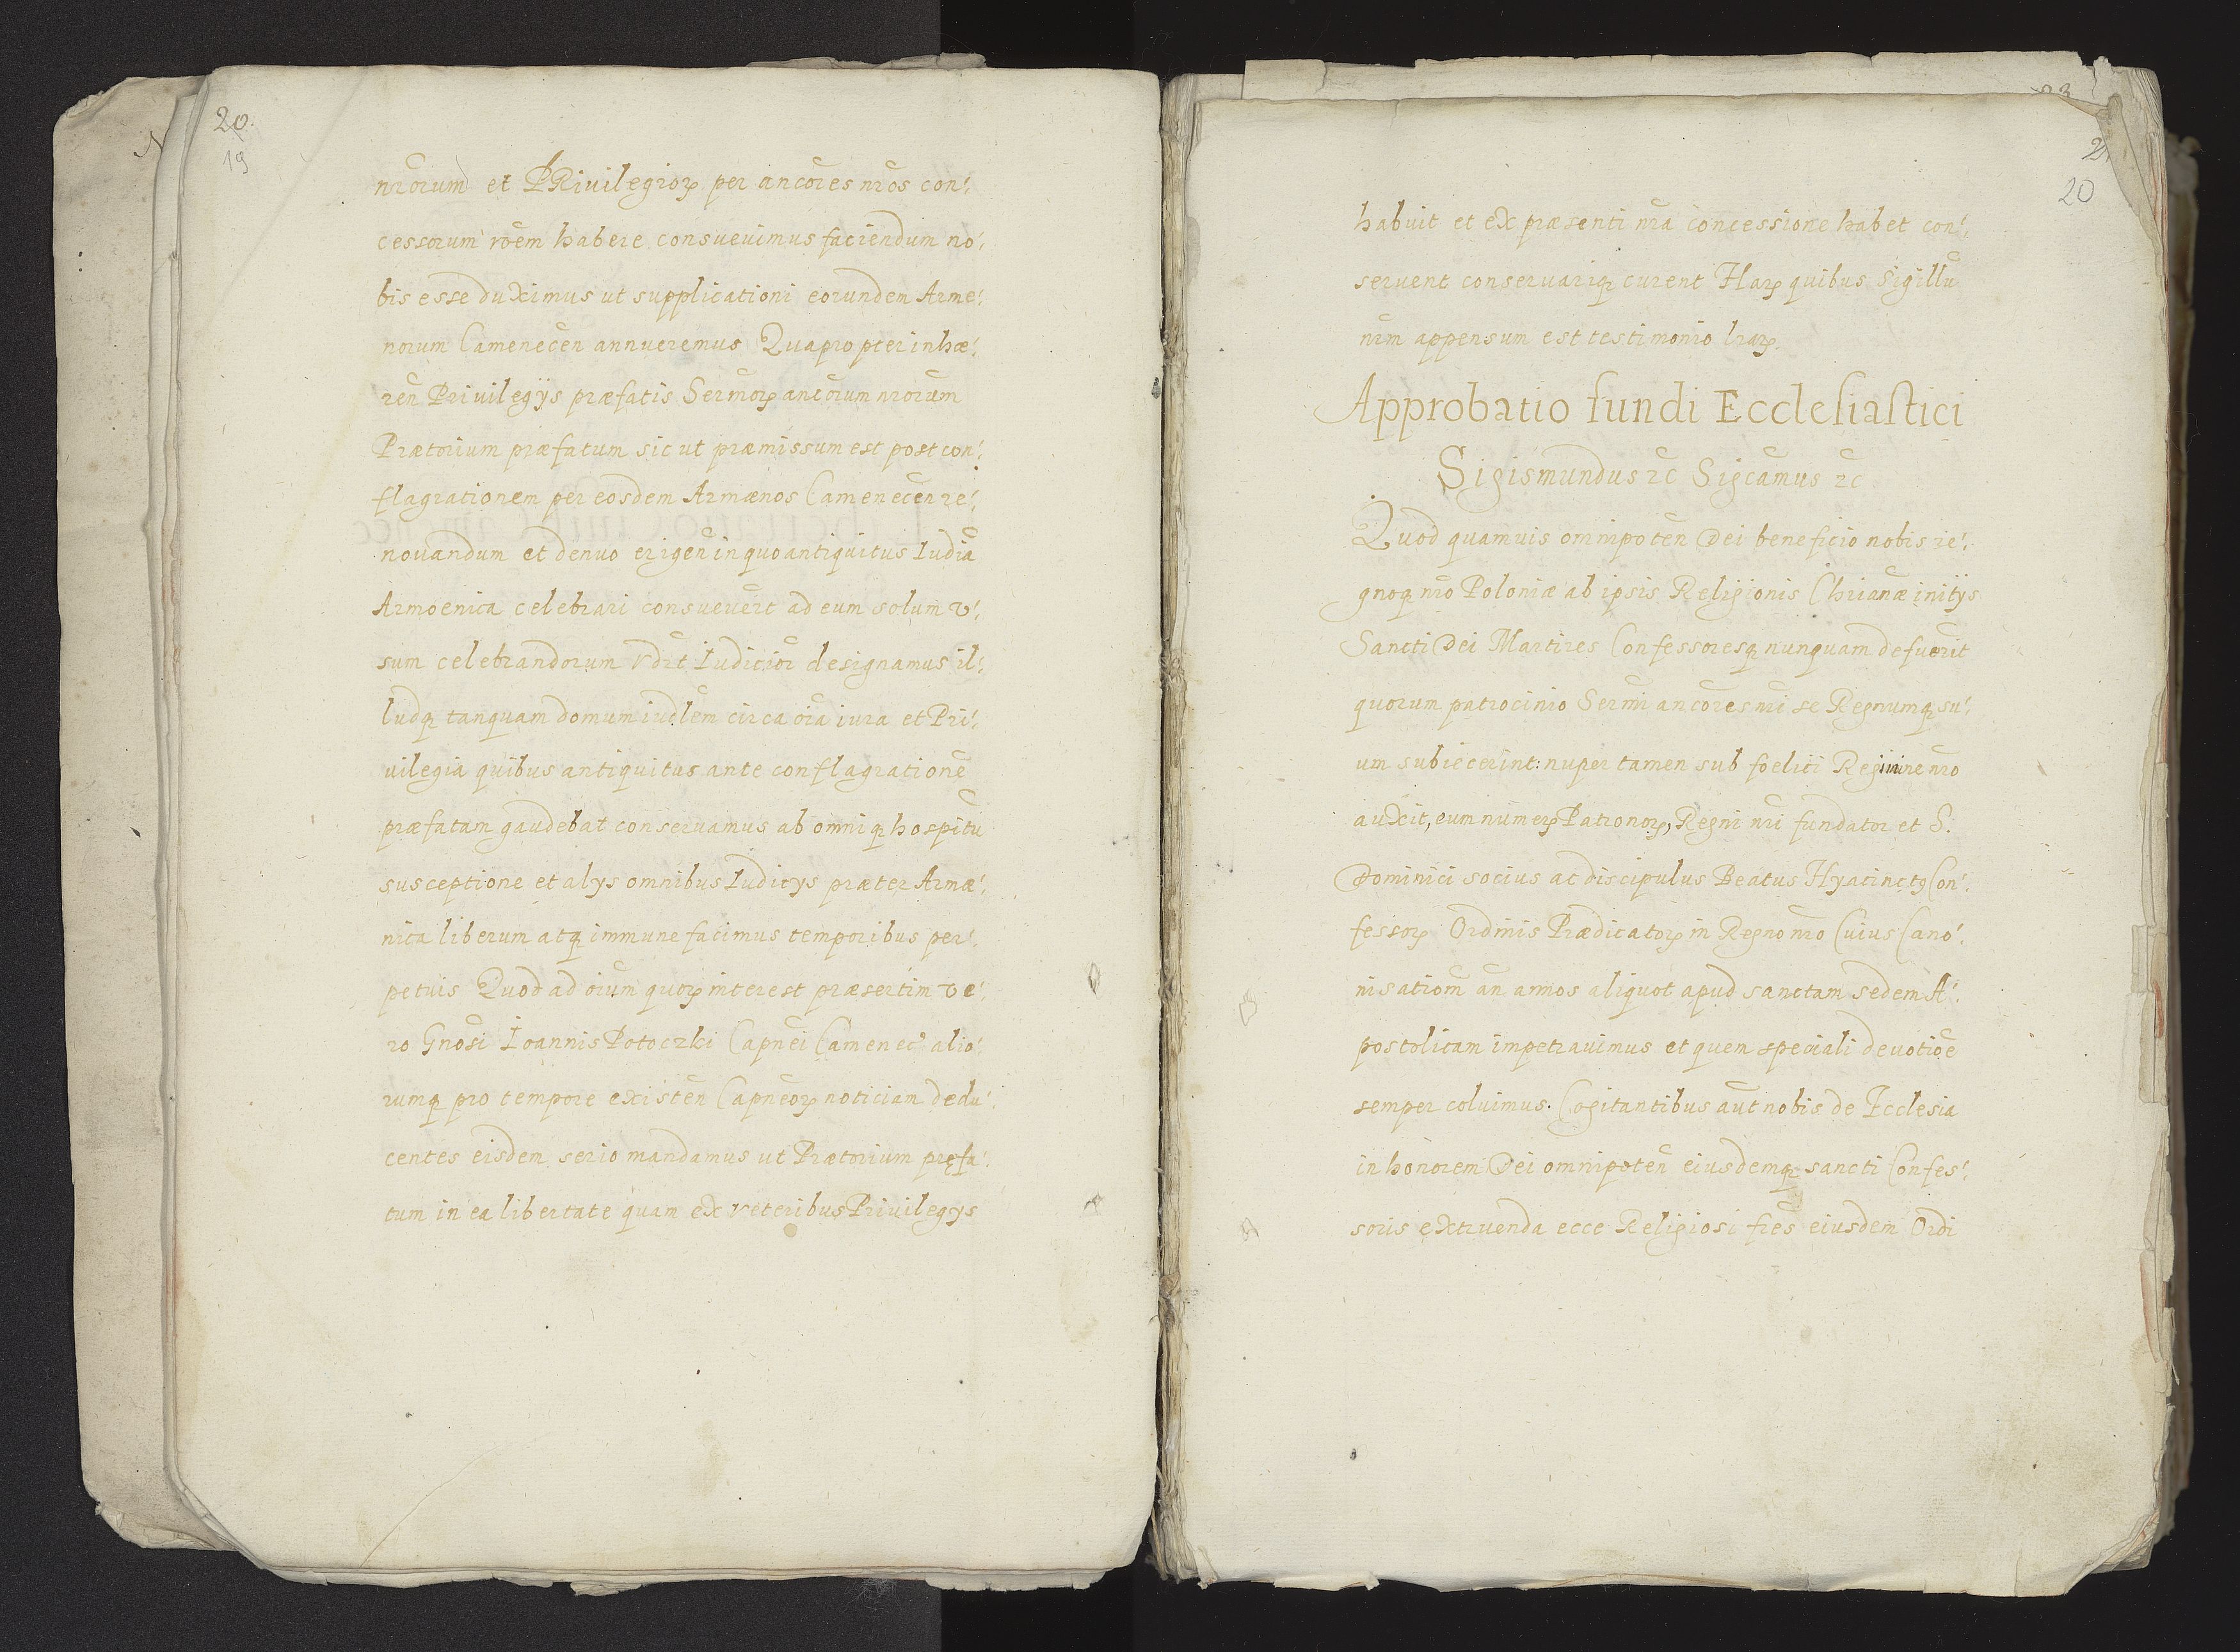 20.
19
nr̃orum et PRivilegior̃ per anc̃ores nr̃os con⸗
cessorum rõem habere consuevimus faciendum no⸗
bis esse duximus ut supplicationi eorundem Arme⸗
norum Camenecen̄ annueremus Quapropter inhæ⸗
ren̄ Privilegÿs præfatis Sermor̃ anc̃orum nr̃orum
Prætorium præfatum sicut præmissum est post con⸗
flagrationem per eosdem Armænos Camenecen̄ re⸗
novandum et denuo erigen̄ in quo antiquitus Iudia̅
Armoenica celebrari consuever̃t ad eum solum v⸗
sum celebrandorum vdr̃t Iudicior̃ designamus il⸗
ludq̨ tanquam domum iud̃lem circa õia iura et Pri⸗
uilegia quibus antiquitus ante conflagratione̅
præfatam gaudebat conservamus ab omniq̨ hospitu̅
susceptione et alys omnibus Iudicys præter Armæ⸗
nica liberum atq̨ immune facimus temporibus per⸗
petuis Quod ad õium quor̃ interest præsertim ve⸗
ro Gnõsi Ioannis Potoczki Capn̄ei Camenec̃ alio⸗
rumq̨ pro tempore existen̄ Capn̄eor̃ noticiam dedu⸗
centes eisdem serio mandamus ut Prætorium pręfa⸗
tum in ea libertate quam ex veteribus Privilegys
20
habuit et ex præsenti nr̃a concessione habet con⸗
servent conservariq̨ curent Har̃ quibus Sigillu̅
nr̃m appensum est testimonio lrar̃.
Approbatio fundi Ecclesiastici
Sigismundus ꝛc Sigc̃amus ꝛc
Quod quamuis omnipoten̄ Dei beneficio nobis re⸗
gnoq̨ nr̃o Poloniæ ab ipsis Religionis Chrianæ initÿs
Sancti Dei Martires Confessoresq̨ nunquam defuer̃it
quorum patrocinio Sermi anc̃ores nr̃i se Regnumq̨ su⸗
um subiecerint: nuper tamen sub foelici Regimine nr̃o
auxit, eum numer̃ Patronor̃, Regni nr̃i fundator et S.
Dominici socius ac discipulus Beatus Hyacinctꝯ Con⸗
fessor̃ Ordinis Prædicator̃ in Regno nr̃o Cuius Cano⸗
nisatiom̃ an̄ annos aliquot apud sanctam sedem A⸗
postolicam impetrauimus et quem speciali devotiõe
semper coluimus. Cogitantibus aut̃ nobis de Ecclesia
in honorem Dei omnipoten̄ eiusdemq̨ sancti Confes⸗
soris extruenda ecce Religiosi fr̃es eiusdem Ordi